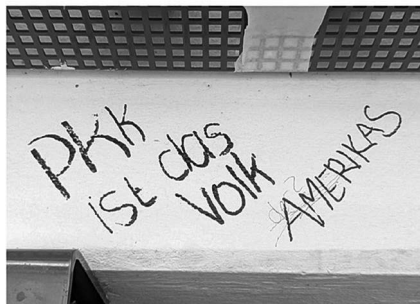 PKK
ist das
Volk AMERIKAS